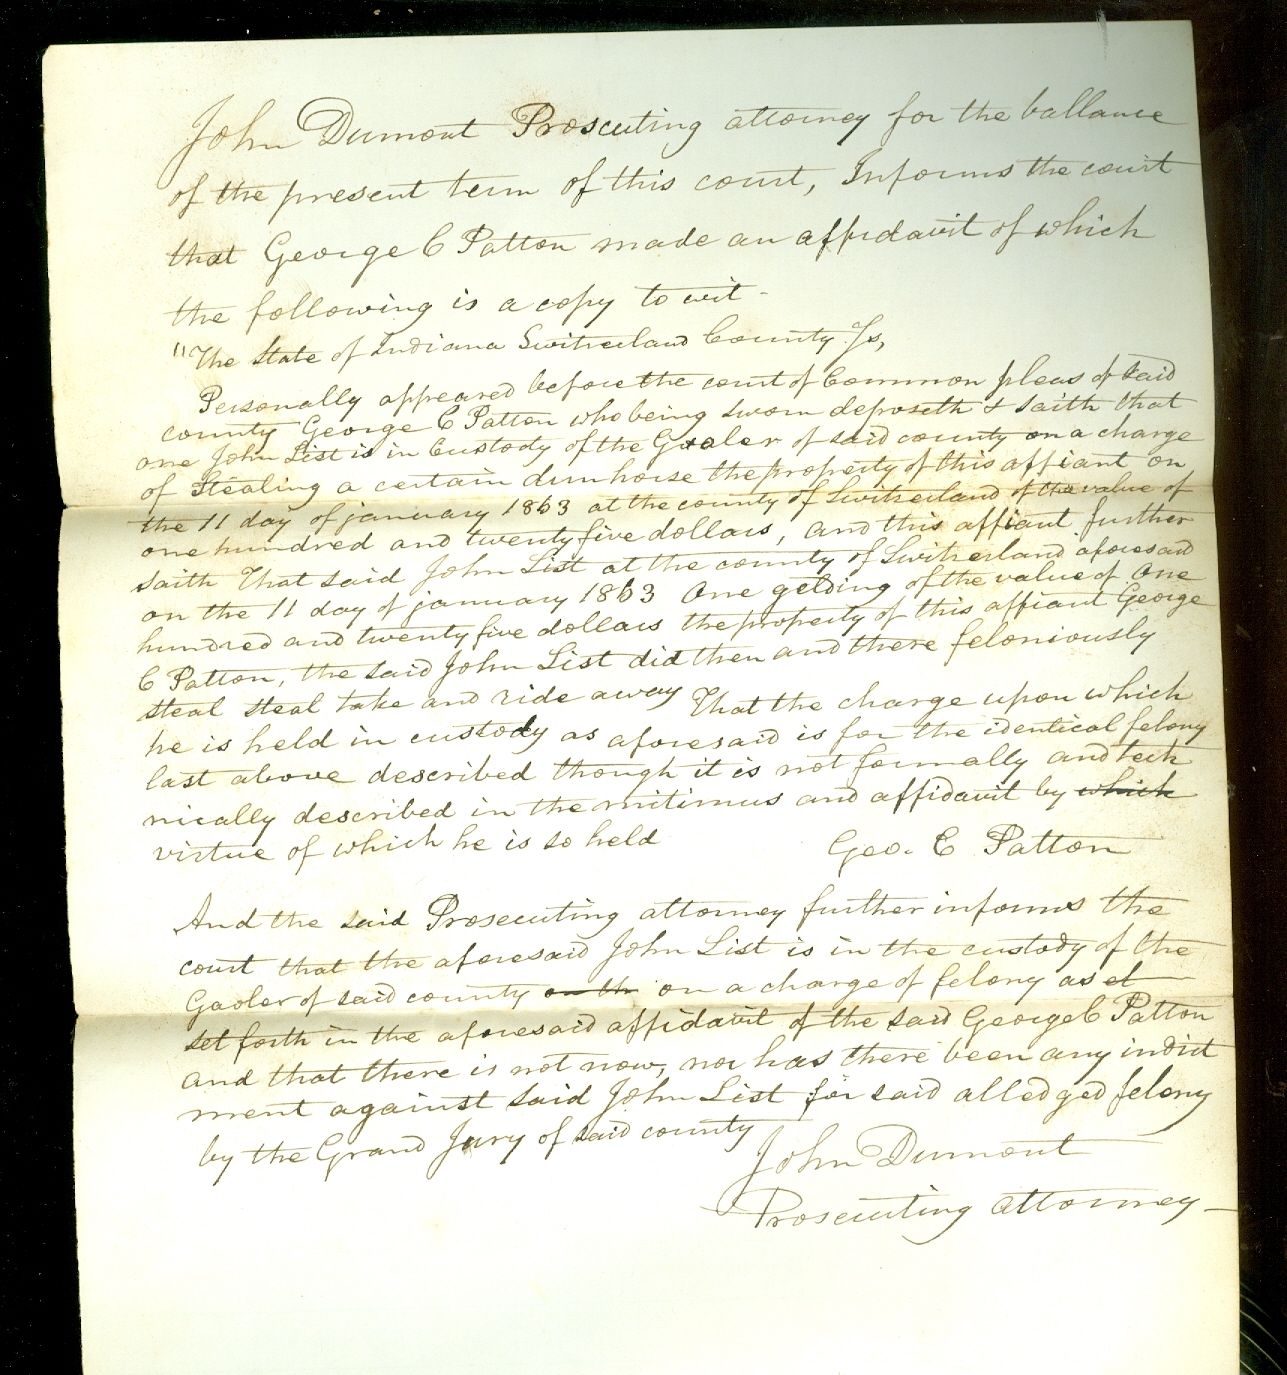 John Dumont Proscuting attorney for the ballance
of the present term of this court, Informs the court
that George C Patton made an affidavit of which
the following is a copy to wit -
"The State of Indiana Switzerland County Ss,
Personally appeared before the court of Common pleas of Said
county George C Patton who being sworn deposeth & saith that
one John List is in Custody of the Gaoler of said county on a charge
of Stealing a certain dun horse the property of this affiant on
the 11 day of january 1863 at the county of Switzerland of the value of
one hundred and twenty five dollars, and this affiant further
saith That said John List at the county of Switzerland aforesaid
on the 11 day of january 1863 One gelding of the value of One
hundred and twenty five dollars the property of this affiant George
C Patton, the said John List did then and there feloniously
steal steal take and ride away That the charge upon which
he is held in custody as aforesaid is for the identical felony
last above described though it is not formally and tech
nically described in the mitimus and affidavit by which
virtue of which he is so held
Geo. C Patton
And the said Prosecuting attorney further informs the
court that the aforesaid John List is in the custody of the
Gaoler of said county on th on a charge of felony as et
set forth in the aforesaid affidavit of the said George C Patton
and that there is not now, nor has there been any indict
ment against said John List for said alledged felony
by the Grand Jury of said county
John Dumont
Prosecuting attorney